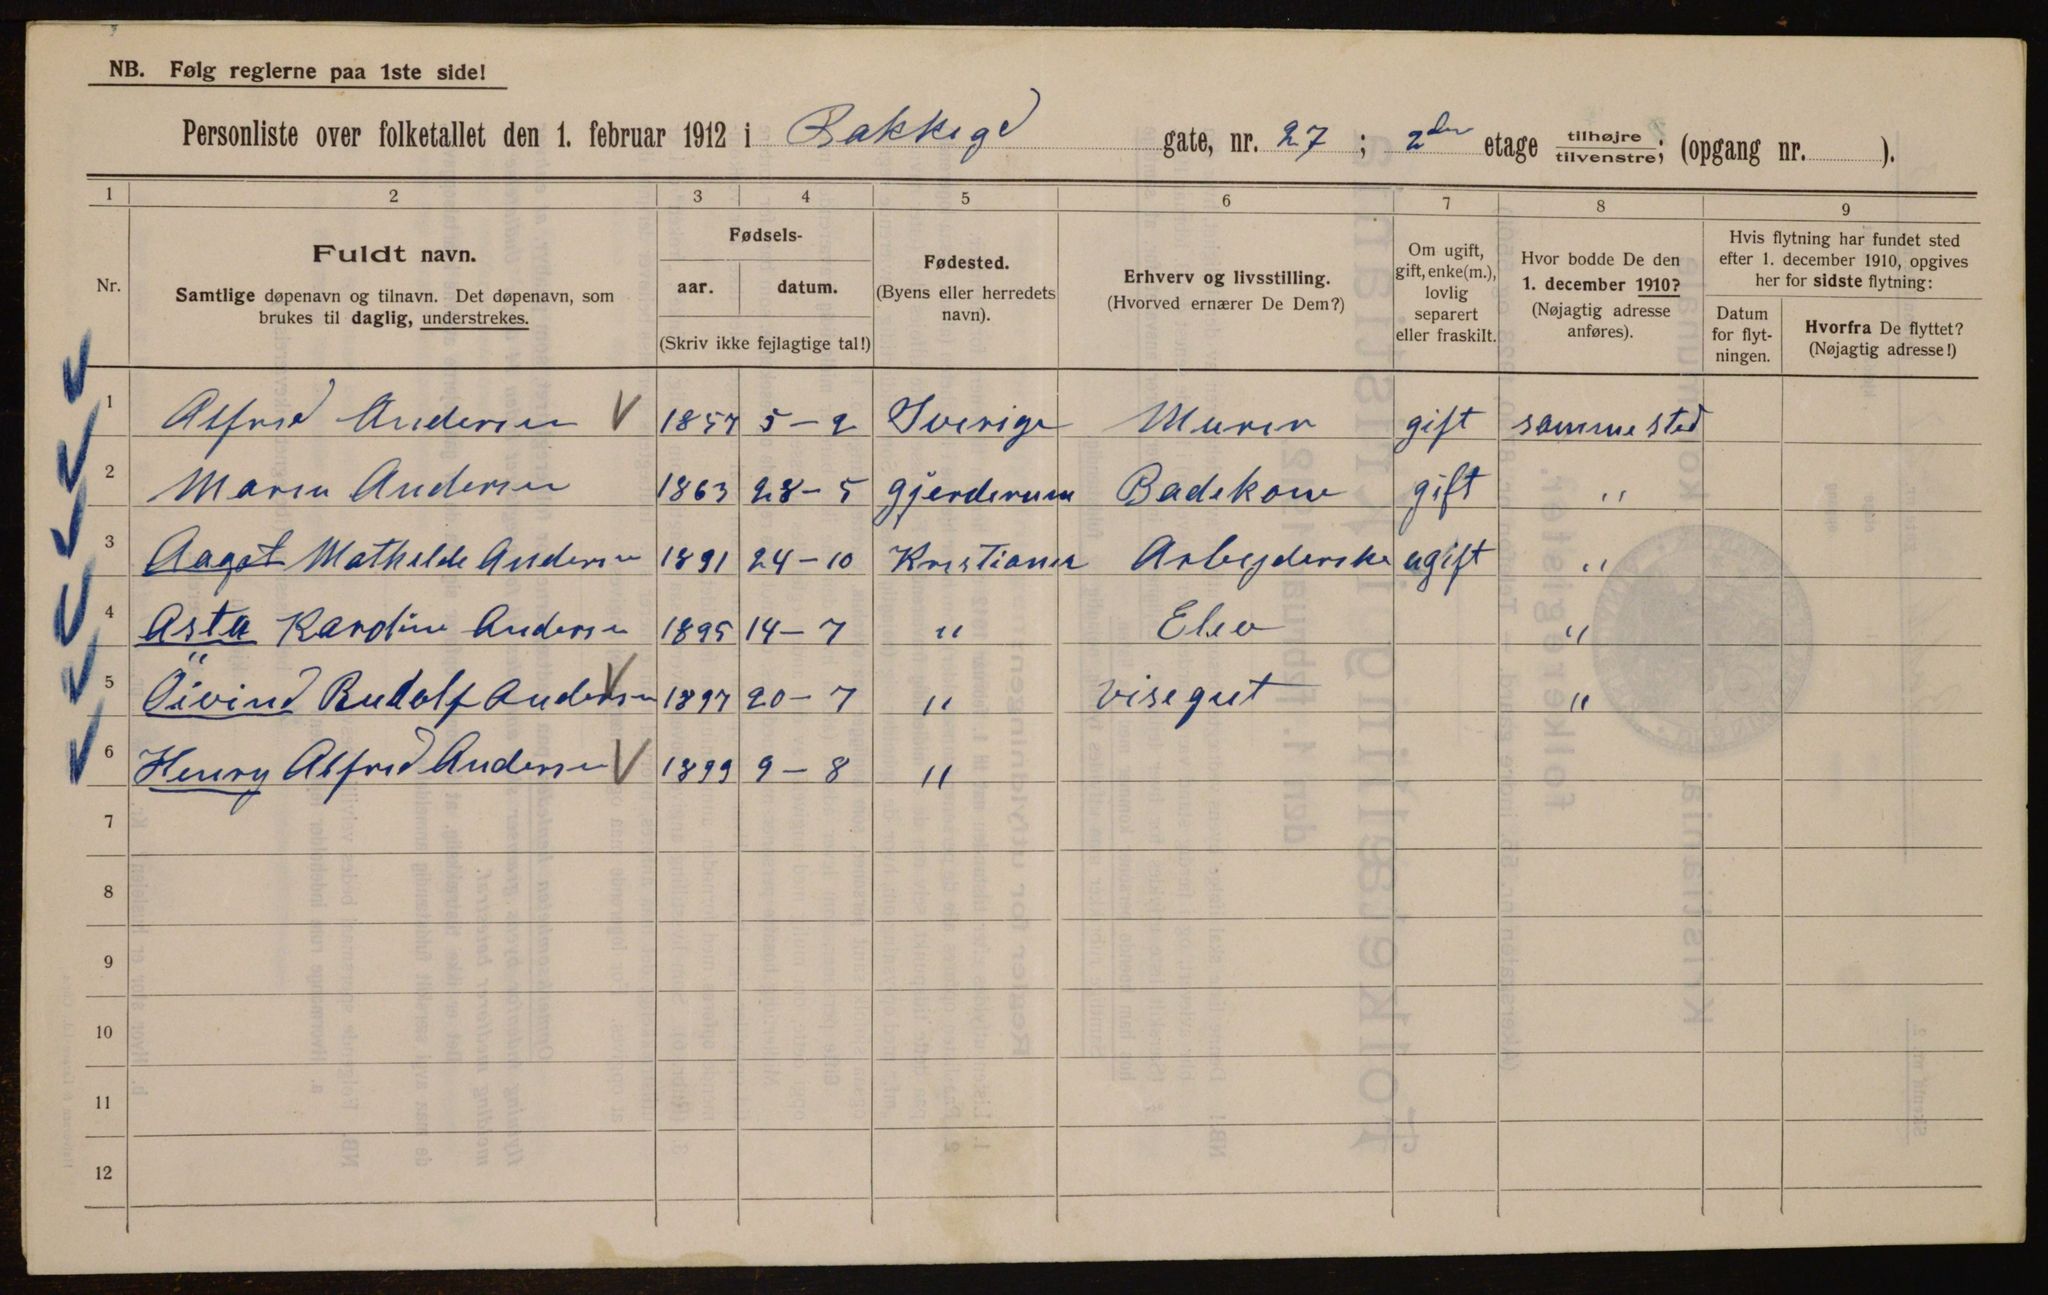 NB. Følg reglerne paa 1ste side!
Personliste over folketallet den 1. februar 1912 i Bakkegd gate, nr. 27; 2den etage tilhøjre/tilvenstre; (opgang nr. ).
1 2 3 4 5 6 7 8 9
Nr.
Fuldt navn.
Samtlige døpenavn og tilnavn. Det døpenavn, som
brukes til daglig, understrekes.
Fødsels-
aar. datum.
(Skriv ikke fejlagtige tal!)
Fødested.
(Byens eller herredets
navn).
Erhverv og livsstilling.
(Hvorved ernærer De Dem?)
Om ugift,
gift, enke(m.),
lovlig
separert
eller fraskilt.
Hvor bodde De den
1. december 1910?
(Nøjagtig adresse
anføres).
Hvis flytning har fundet sted
efter 1. december 1910, opgives
her for sidste flytning:
Datum
for flyt-
ningen.
Hvorfra De flyttet?
(Nøjagtig adresse!)
1 Alfred Andersen 1857 5-2 Sverige Murer gift samme sted
2 Maren Andersen 1863 28-5 Gjerderum Badekone gift "
3 Aagot Mathilde Andersen 1891 24-10 Kristiania Arbejderske ugift "
4 Asta Karoline Andersen 1895 14-7 " Elev "
5 Öivind Rudolf Andersen 1897 20-7 " Visegut "
6 Henry Alfred Andersen 1899 9-8 "
7
8
9
10
11
12